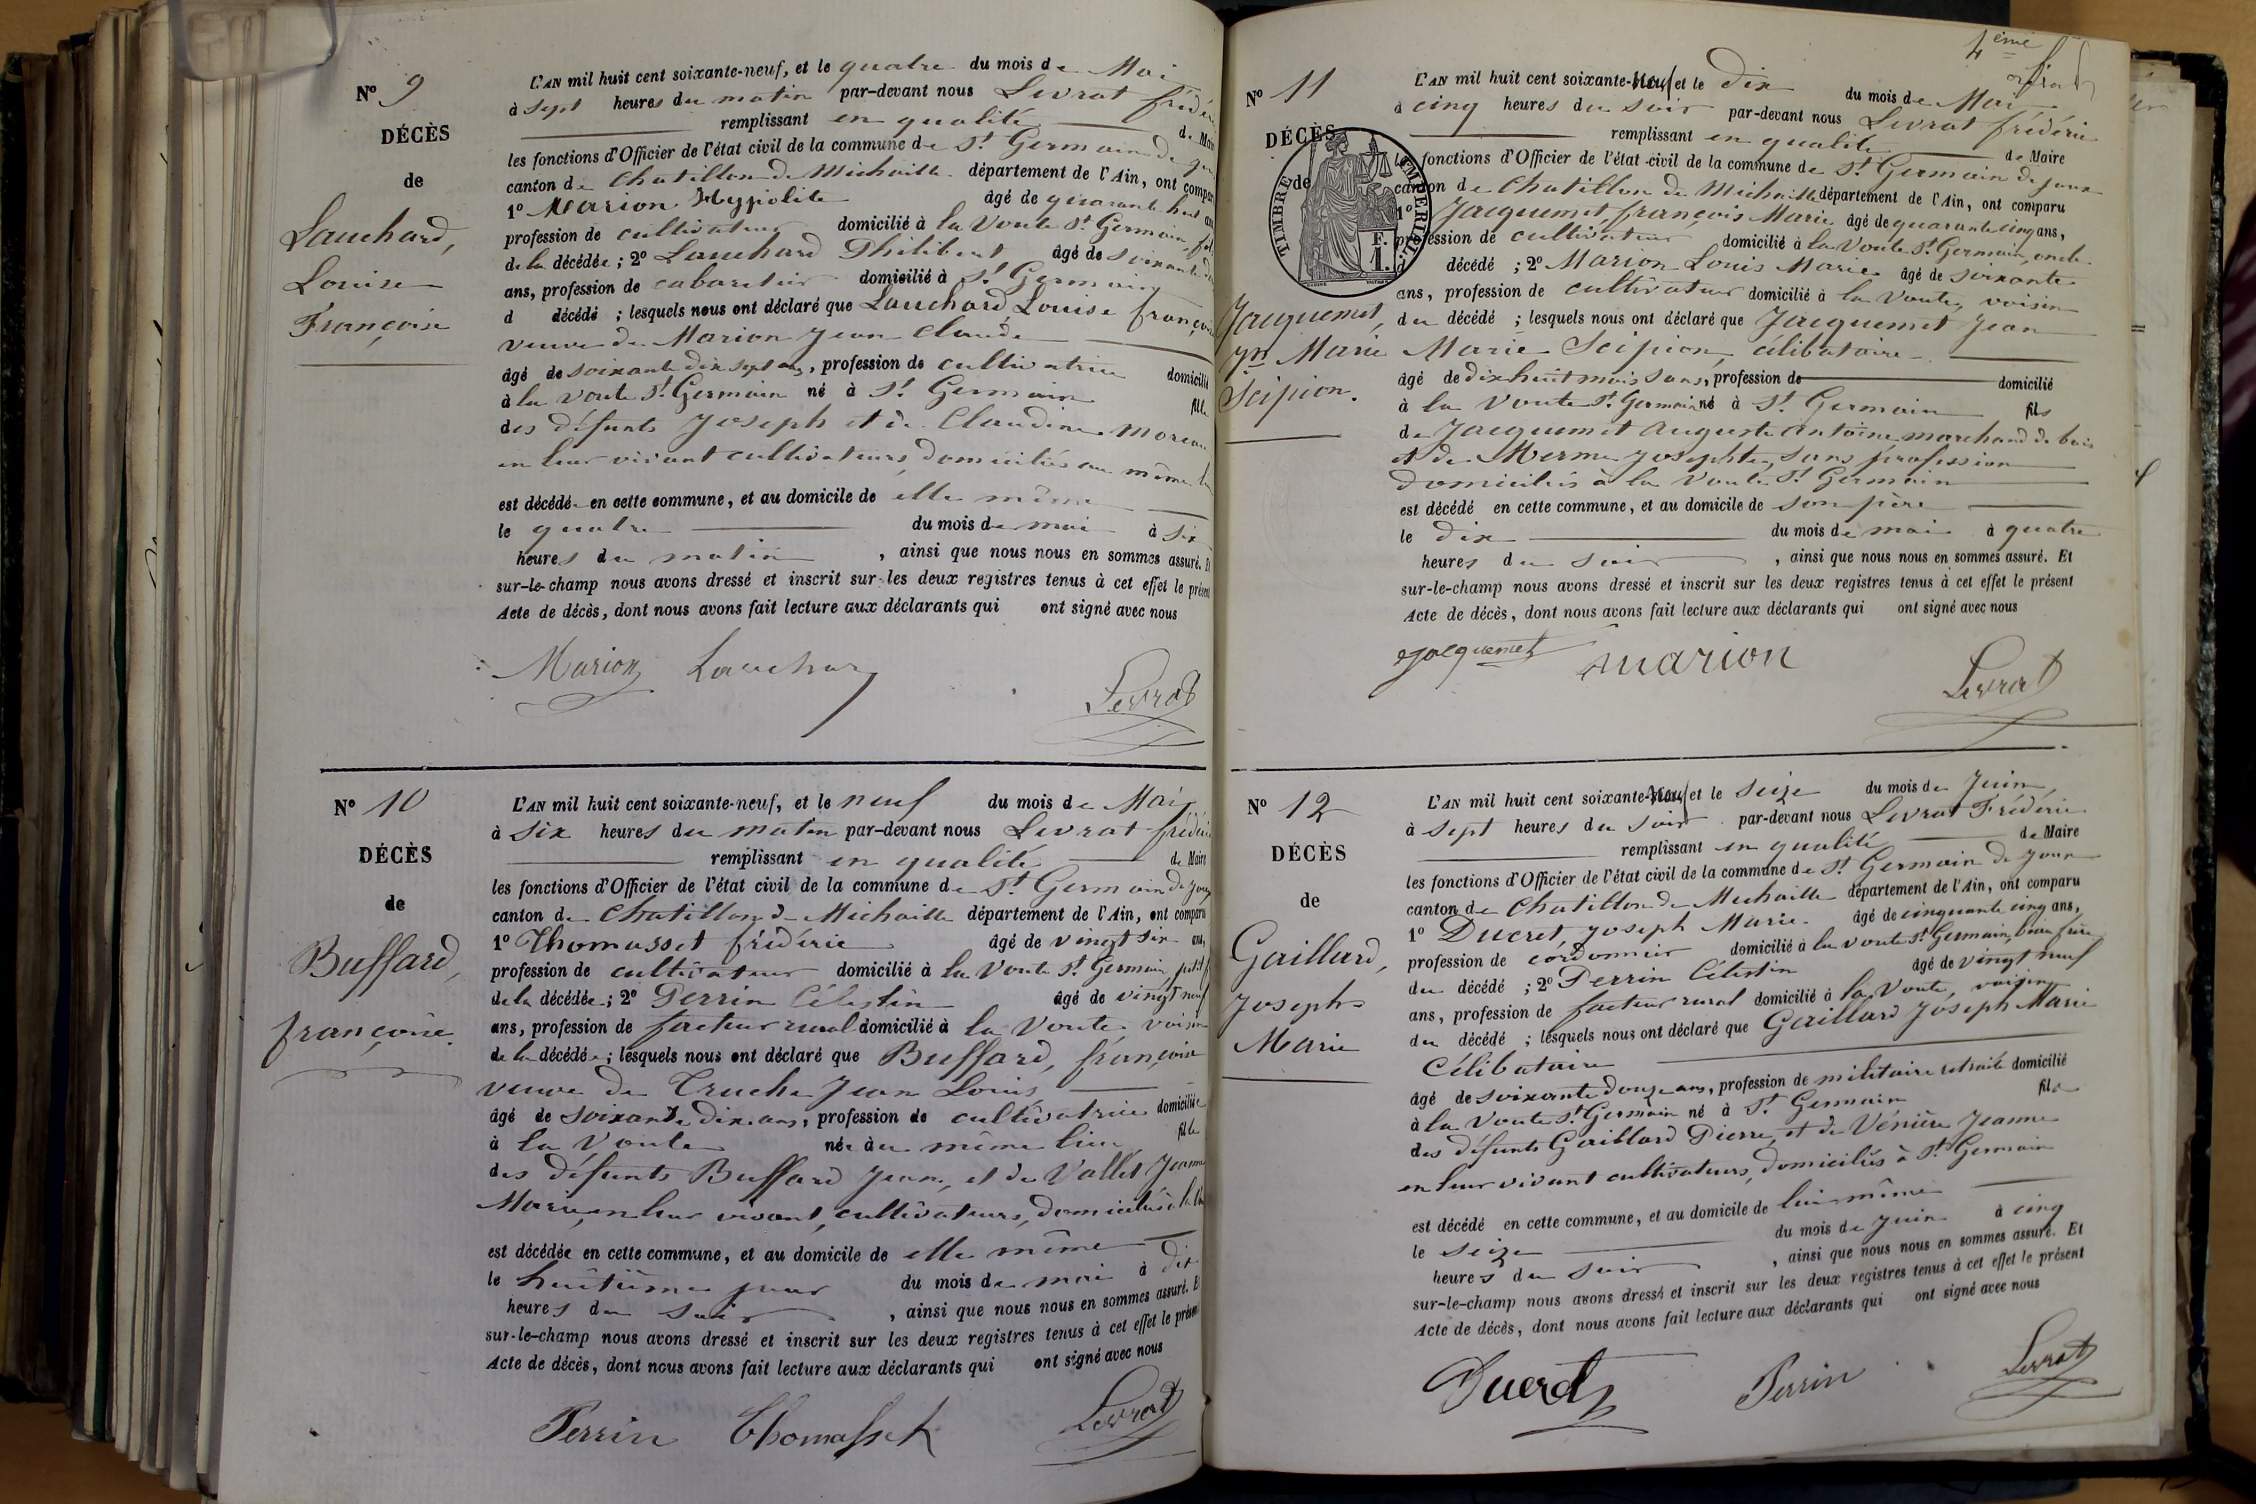 N° 9
DÉCÈS
de
Lauchard,
Louise
Françoise
L'AN mil huit cent soixante-neuf, et le quatre du mois de Mai
à sept heures du matin par-devant nous Levrat frédéric
remplissant en qualité de Maire
les fonctions d'Officier de l'état civil de la commune de St Germain de
canton de Chatillon de Michaille département de l'Ain, ont comparu
1° Marion Hyppolite âgé de quarante huit ans
profession de cultivateur domicilié à la Voute St Germain, fils
de la décédée ; 2° Lauchard Philibert âgé de soixante
ans, profession de cabaretier domicilié à St Germain
d décédé ; lesquels nous ont déclaré que Lauchard Louise françoise
veuve de Marion Jean Claude
âgé de soixante dix sept ans, profession de cultivatrice domicilié
à la Voute St Germain né à St Germain fille
des défunts Joseph et de Claudine Moreau
en leur vivant cultivateurs, domiciliés au même lieu
est décédée en cette commune, et au domicile de elle même
le quatre du mois de mai à six
heures du matin, ainsi que nous nous en sommes assuré. Et
sur-le-champ nous avons dressé et inscrit sur les deux registres tenus à cet effet le présent
Acte de décès, dont nous avons fait lecture aux déclarants qui ont signé avec nous
Marion Lauchard Levrat
N° 10
DÉCÈS
de
Buffard,
françoise.
L'AN mil huit cent soixante-neuf, et le neuf du mois de Mai
à six heures du matin par-devant nous Levrat frédéric
remplissant en qualité de Maire
les fonctions d'Officier de l'état civil de la commune de St Germain de Joux
canton de Chatillon de Michaille département de l'Ain, ont comparu
1° Thomasset frédéric âgé de vingt six ans,
profession de cultivateur domicilié à la Voute St Germain, petit f
de la décédée ; 2° Perrin Célestin âgé de vingt neuf
ans, profession de facteur rural domicilié à la Voute, voisin
de la décédée ; lesquels nous ont déclaré que Buffard, françoise
veuve de Truche Jean Louis
âgé de soixante dix ans, profession de cultivatrice domiciliée
à la Voute née à u même lieu fille
des défunts Buffard Jean, et de Vallet Jeanne
Marie, en leur vivant, cultivateurs, domiciliés à la
est décédée en cette commune, et au domicile de elle même
le huitième jour du mois de mai à dix
heures du soir, ainsi que nous nous en sommes assuré. Et
sur-le-champ nous avons dressé et inscrit sur les deux registres tenus à cet effet le présent
Acte de décès, dont nous avons fait lecture aux déclarants qui ont signé avec nous
Perrin Thomasset Levrat
4ème
N° 11
DÉCÈS
de
TIMBRE IMPÉRIAL
F.
1.
Jacquemet,
Jn Marie
Scipion.
L'AN mil huit cent soixante-neuf et le dix du mois de Mai
à cinq heures du soir par-devant nous Levrat frédéric
remplissant en qualité de Maire
les fonctions d'Officier de l'état-civil de la commune de St Germain de Joux
canton de Chatillon de Michaille département de l'Ain, ont comparu
1° Jacquemet, françois Marie âgé de quarante cinq ans,
profession de cultivateur domicilié à la Voute St Germain, oncle
d décédé ; 2° Marion Louis Marie âgé de soixante
ans, profession de cultivateur domicilié à la Voute, voisin
du décédé ; lesquels nous ont déclaré que Jacquemet Jean
Marie Scipion, célibataire
âgé de dix huit mois sans, profession de domicilié
à la Voute St Germain né à St Germain fils
de Jacquemet Auguste Antoine, marchand de bois
et de Mermet Josephte, sans profession
domiciliés à la Voute St Germain
est décédé en cette commune, et au domicile de son père
le dix du mois de mai à quatre
heures du soir, ainsi que nous nous en sommes assuré. Et
sur-le-champ nous avons dressé et inscrit sur les deux registres tenus à cet effet le présent
Acte de décès, dont nous avons fait lecture aux déclarants qui ont signé avec nous
Jacquemet Marion Levrat
N° 12
DÉCÈS
de
Gaillard,
Joseph
Marie
L'AN mil huit cent soixante-neuf et le seize du mois de Juin,
à sept heures du soir par-devant nous Levrat Frédéric
remplissant en qualité de Maire
les fonctions d'Officier de l'état civil de la commune de St Germain de Joux
canton de Chatillon de Michaille département de l'Ain, ont comparu
1° Ducret, Joseph Marie âgé de cinquante cinq ans,
profession de cordonnier domicilié à la Voute St Germain, beau frère
du décédé ; 2° Perrin Célestin âgé de vingt neuf
ans, profession de facteur rural domicilié à la Voute, voisin
du décédé ; lesquels nous ont déclaré que Gaillard Joseph Marie
Célibataire
âgé de soixante douze ans, profession de militaire retraité domicilié
à la Voute St Germain né à St Germain fils
des défunts Gaillard Pierre, et de Vénière Jeanne
en leur vivant cultivateurs, domiciliés à St Germain
est décédé en cette commune, et au domicile de lui même
le seize du mois de Juin à cinq
heures du soir, ainsi que nous nous en sommes assuré. Et
sur-le-champ nous avons dressé et inscrit sur les deux registres tenus à cet effet le présent
Acte de décès, dont nous avons fait lecture aux déclarants qui ont signé avec nous
Ducret Perrin Levrat